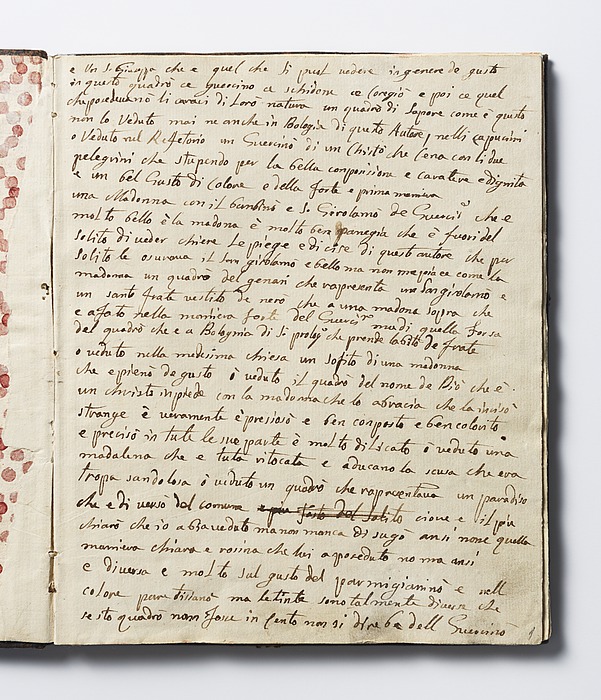 e un S. Giusepe che e quel che si puol vedere in genere de gusto
in questo quadro ce guercino ce schidone ce Coregio e poi ce quel
che posedevano li caraci di Loro natura un quadro di sapore come e questo
non lo Veduto mai ne anche in Bologia di questo Autore, nelli capucini
o Veduto nel Refetorio un Guercino di un Christo che Cena con li due
pelegrini che stupendo per la bella conposisione e caratere e dignita
e un bel Gusto di Colore e della forte e prima maniera
una Madonna con il bambino e S. Girolamo de Guercin che e
molto bello è la madona è molto ben panegia che è fuori del
solito di veder chiere Le piege e di cise di questo autore che per
solito le osurava il san girolamo e bello ma non me piace come la
madonna un quadro del genari che rapresenta un San girolamo e
un santo frate vestito de nero che a una madona sopra che
e afato nella maniera forte del Guercin ma di quella forsa
del quadro che e a Bolognia di S. che prende labito de frate
o veduto nella medesima chiesa un sofito di una madonna
che e pieno de gusto ò veduto il quadro del nome de Dio che e
un christo in piede con la madonna che lo abracia che la inciso
strange è veramente è presioso e ben conposto e ben colorito
e preciso in tute le sue parte è molto dilicato ò veduto una
madalena che e tuta ritocata e aducano la scusa che era
tropa sandolosa ò veduto un quadro che rapresentava un paradiso
che e di verso dal comune e piu fosto del solito cioue e il piu
chiaro che io abia veduto ma non manca di sugo ansi none quella
maniera chiara e rosina che lui a poseduto no ma ansi
e diversa e molto sul gusto del parmigianino e nell
colore pare tissiano ma le tinte sono talmente diverse che
se sto quadro non fose in Cento non si direbe dell Guercino